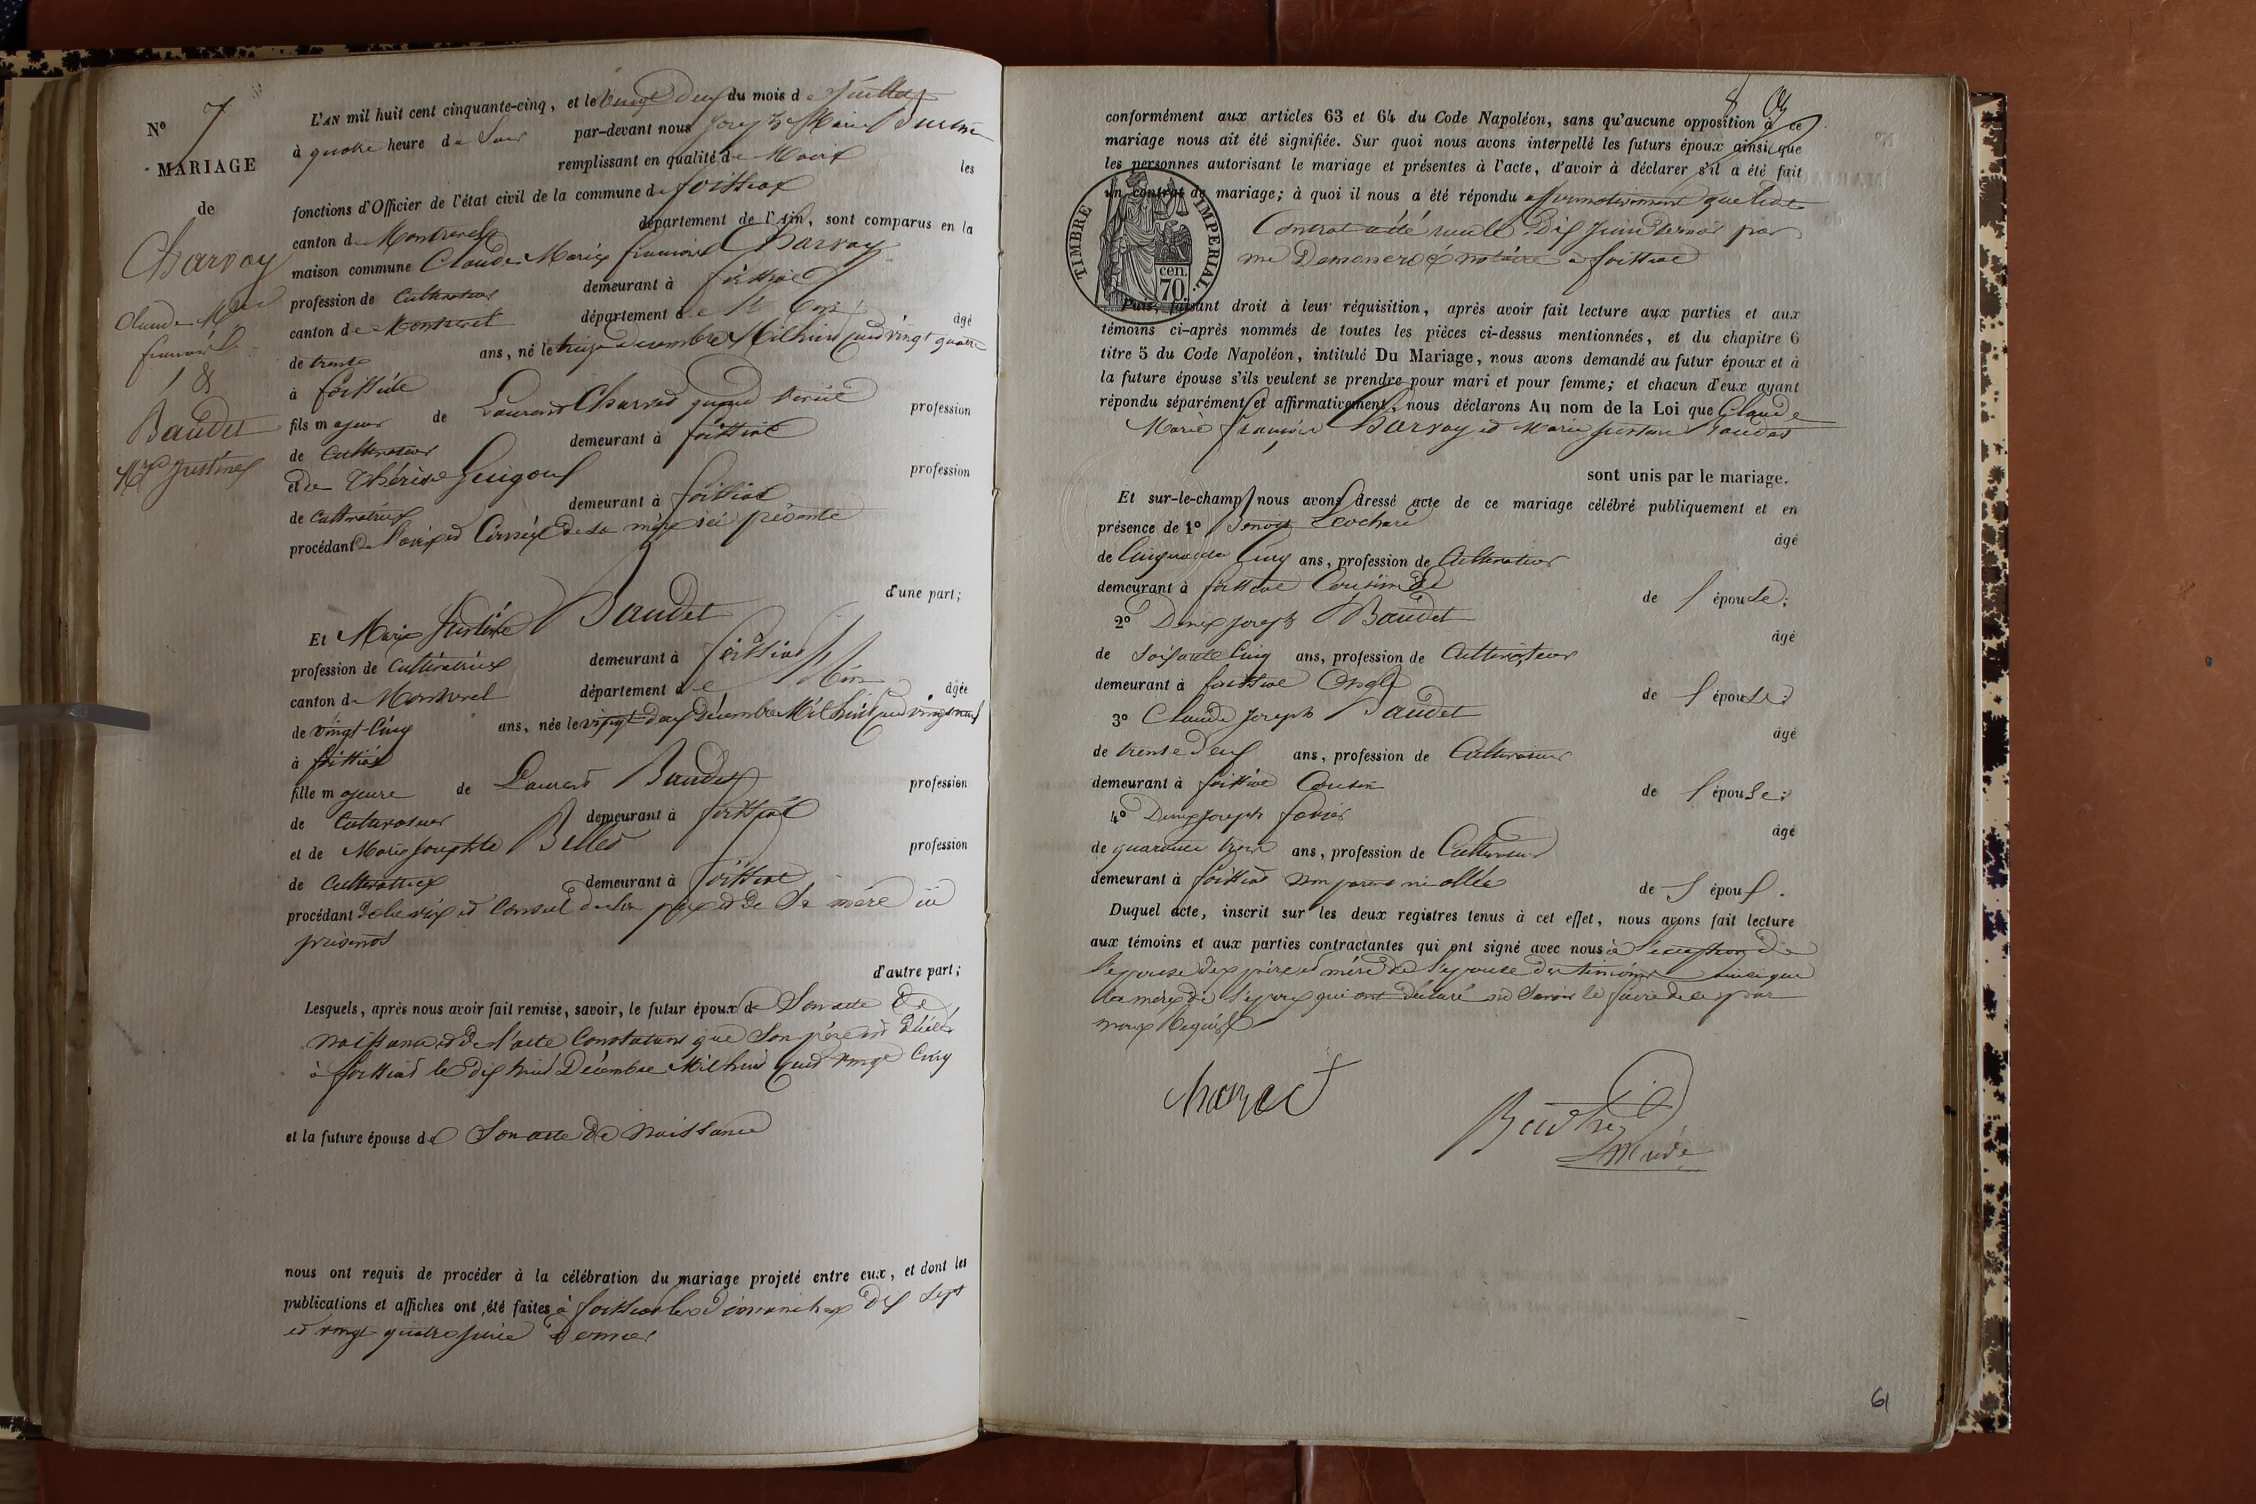 Nº 7
MARIAGE
de
Charvay
Claude Mie
françois
&
Baudet
Mie Justine
L'AN mil huit cent cinquante-cinq, et le vingt deux du mois de Juillet
à quatre heure du Soir par-devant nous Joseph Marie
remplissant en qualité de Maire les
fonctions d'Officier de l'état civil de la commune de foissiat
canton de Montrevel département de l'Ain, sont comparus en la
maison commune Claude Marie françois Charvay
profession de Cultivateur demeurant à foissiat
canton de Montrevel département de l'Ain âgé
de trente ans, né le treize decembre Mil huit Cent vingt quatre
à foissiat
fils majeur de Laurent Charvet quand vivait profession
de Cultivateur demeurant à foissiat
et de Thérèse Guigoux profession
de Cultivatrice demeurant à foissiat
procédant de l'avis et Conseil de sa mère ici présente
d'une part;
Et Marie Justine Baudet
profession de Cultivatrice demeurant à foissiat
canton de Montrevel département de l'Ain âgée
de vingt-Cinq ans, née le vingt deux Décembre Mil huit Cent vingt neuf
à foissiat
fille majeure de Laurent Baudet profession
de Cultivateur demeurant à foissiat
et de Marie Josephte Belled profession
de Cultivatrice demeurant à foissiat
procédant De l'avis et Conseil de Son père et de Sa mère ici
présents
d'autre part;
Lesquels, après nous avoir fait remise, savoir, le futur époux de Son acte De
naissance et De l'acte Constatant que Son père est Décédé
à foissiat le dix huit Décembre Mil huit Cent vingt Cinq
et la future épouse de Son acte De Naissance
nous ont requis de procéder à la célébration du mariage projeté entre eux, et dont les
publications et affiches ont été faites à foissiat les Dimanches Dix Sept
et vingt quatre Juin Dernier
8
conformément aux articles 63 et 64 du Code Napoléon, sans qu'aucune opposition à ce
mariage nous ait été signifiée. Sur quoi nous avons interpellé les futurs époux ainsi que
les personnes autorisant le mariage et présentes à l'acte, d'avoir à déclarer s'il a été fait
un contrat de mariage; à quoi il nous a été répondu affirmativement que ledit
Contrat a été reçu le Dix Juin Dernier par
me notaire à foissiat
TIMBRE IMPERIAL.
cen.
70.
Puis, faisant droit à leur réquisition, après avoir fait lecture aux parties et aux
témoins ci-après nommés de toutes les pièces ci-dessus mentionnées, et du chapitre 6
titre 5 du Code Napoléon, intitulé Du Mariage, nous avons demandé au futur époux et à
la future épouse s'ils veulent se prendre pour mari et pour femme; et chacun d'eux ayant
répondu séparément et affirmativement, nous déclarons Au nom de la Loi que Claude
Marie françois Charvay et Marie Justine Baudet
sont unis par le mariage.
Et sur-le-champ nous avons dressé acte de ce mariage célébré publiquement et en
présence de 1º Benoit âgé
de Cinquante Cinq ans, profession de Cultivateur
demeurant à foissiat Cousin de l'épouse;
2º Denis Joseph Baudet âgé
de Soixante Cinq ans, profession de Cultivateur
demeurant à foissiat Oncle de l'épouse;
3º Claude Joseph Baudet âgé
de trente Deux ans, profession de Cultivateur
demeurant à foissiat Cousin de l'épouse;
4º Denis Joseph âgé
de quarante trois ans, profession de Cultivateur
demeurant à foissiat non parent ni allié de l'époux.
Duquel acte, inscrit sur les deux registres tenus à cet effet, nous avons fait lecture
aux témoins et aux parties contractantes qui ont signé avec nous à l'exception De
l'épouse Des père et mère De l'épouse Des témoins ainsi que
la mère De l'époux qui ont Déclaré ne Savoir le faire De ce par
nous requis
61